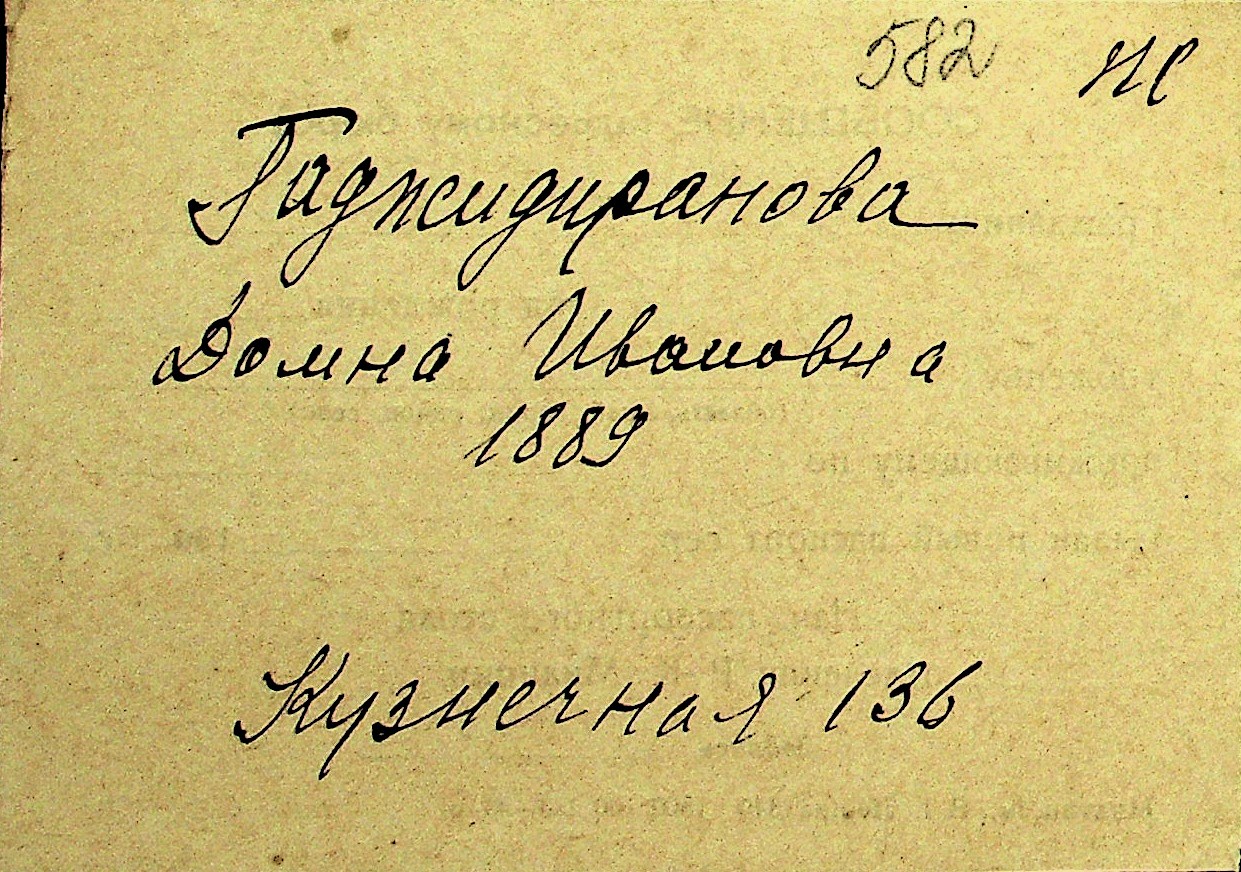 582 НС
Гаджидиранова
Домна Ивановна
1889
Кузнечная 136